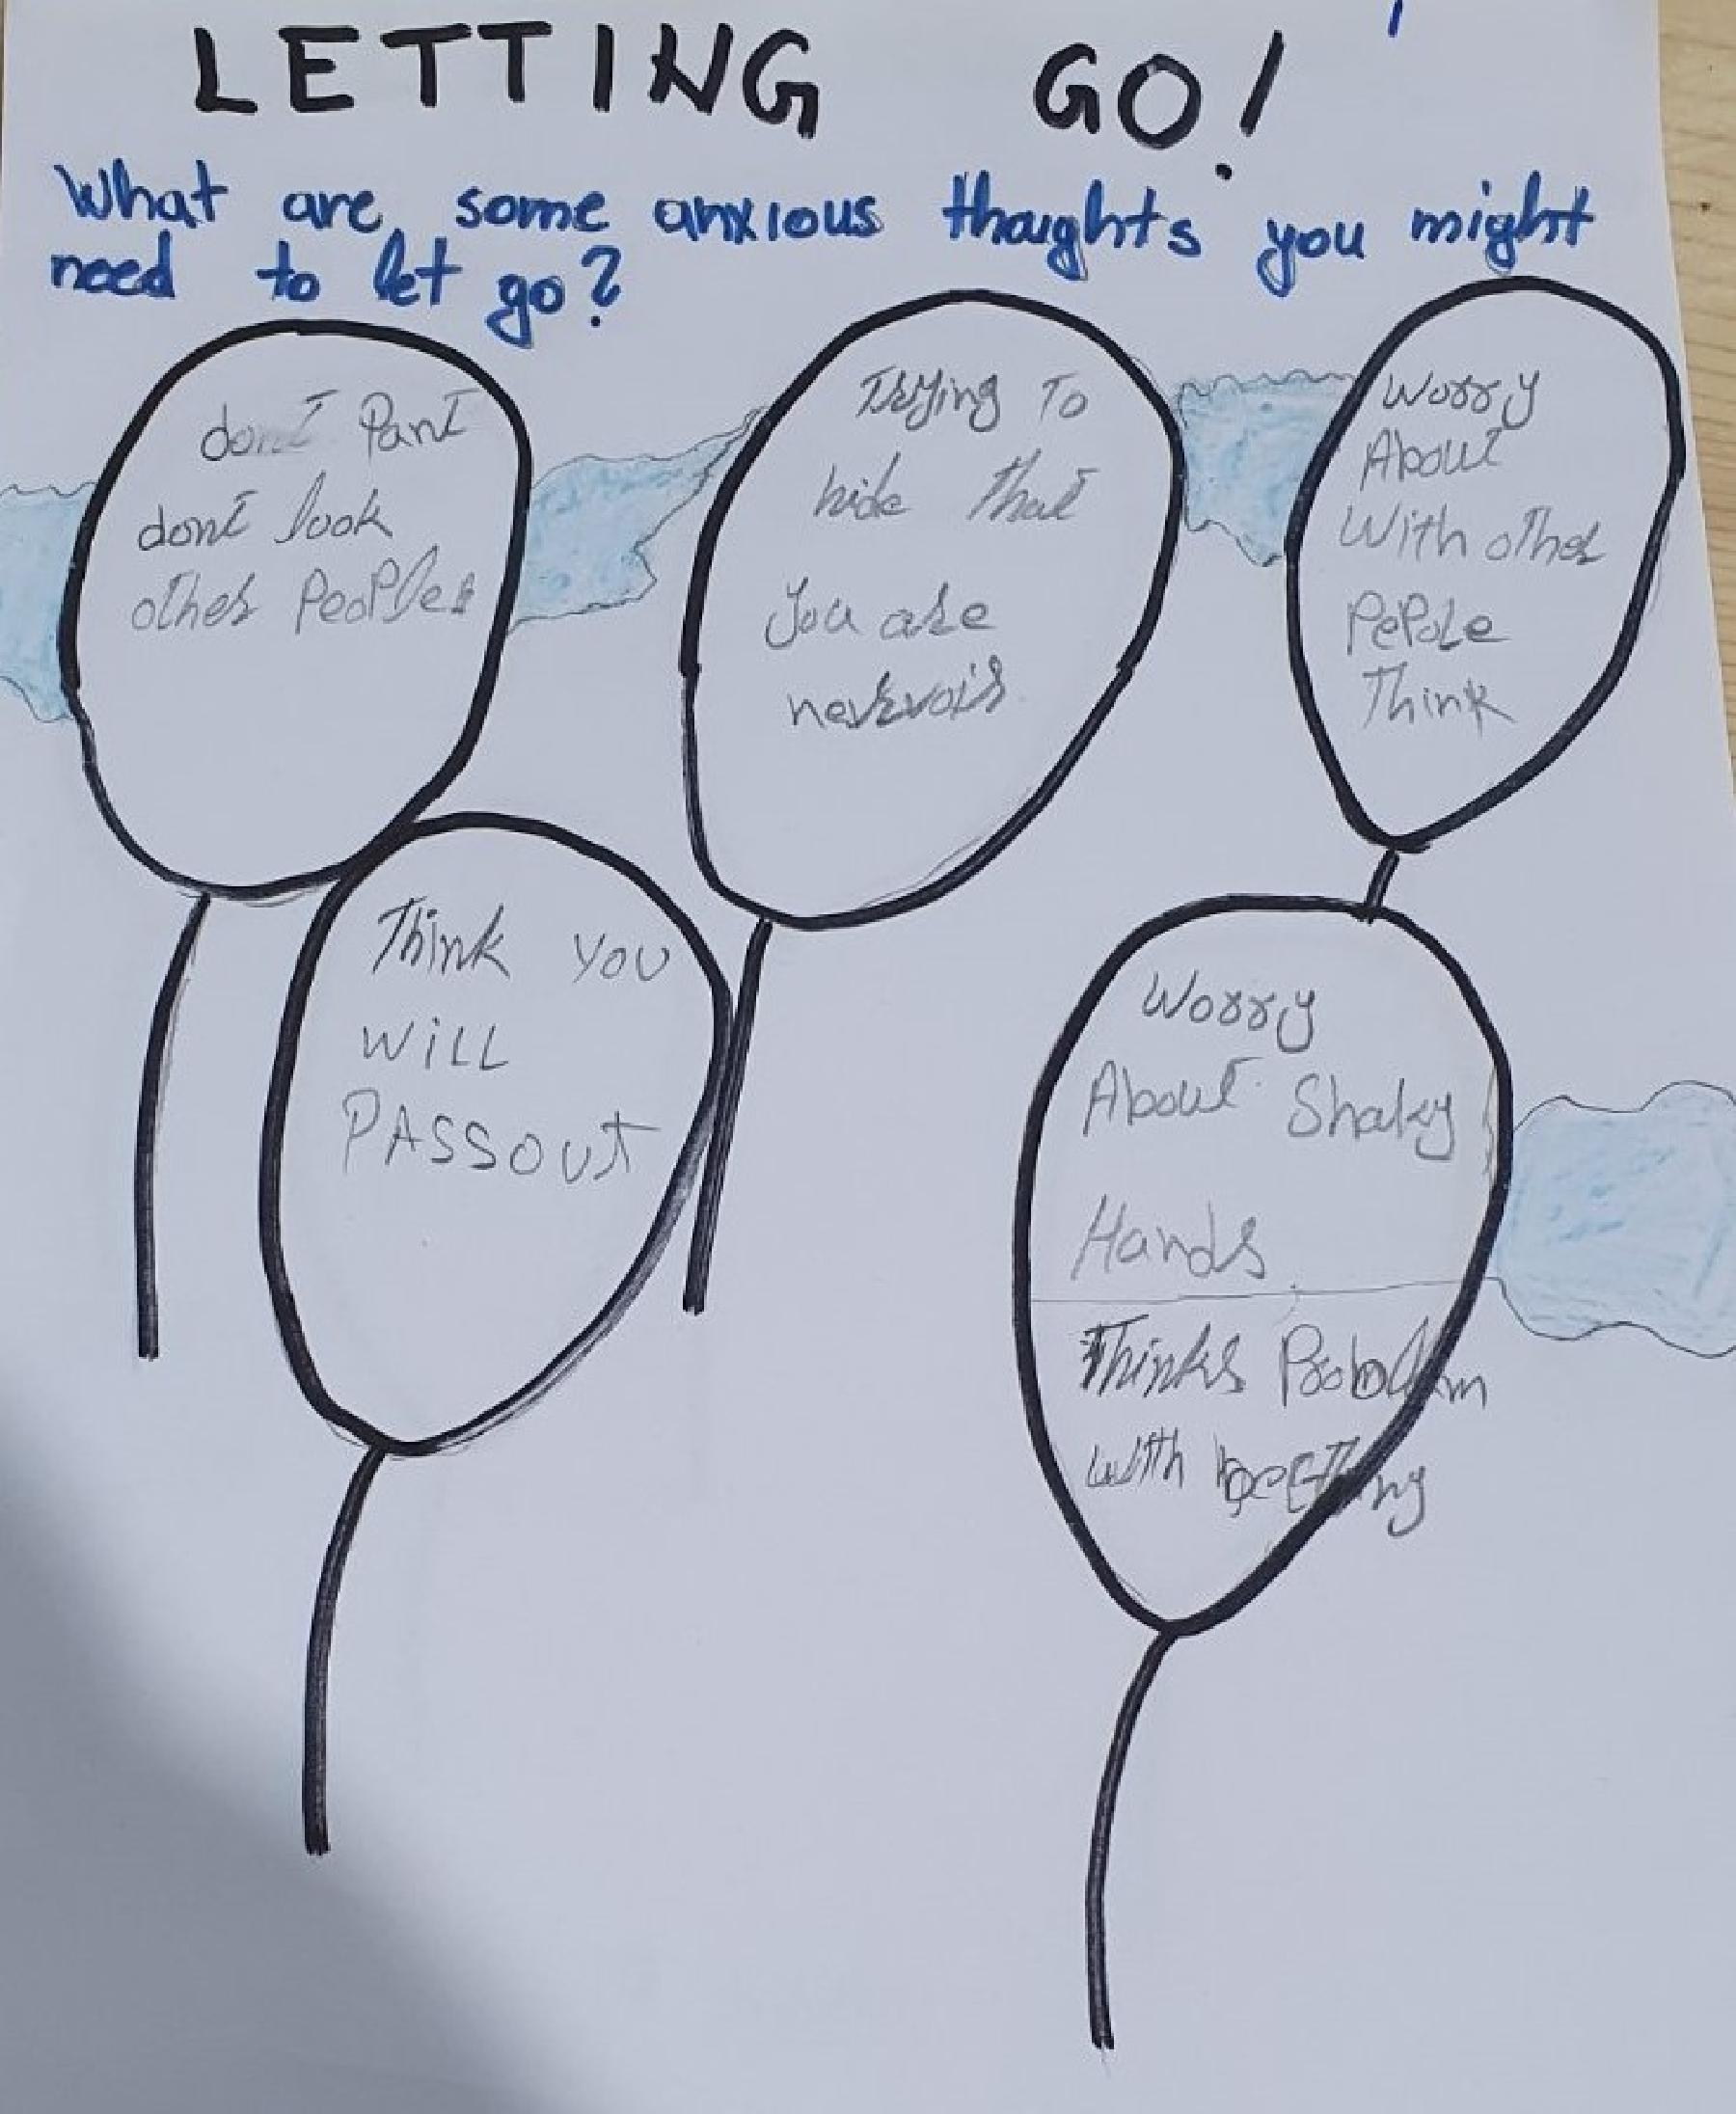 LETTING GO!
What are some anxious thoughts you might
need to let go?
dont Pant
dont look
other Peoples
Trying To
hide that
You are
nervois
Worry
About
With other
PePole
Think
Think you
WiLL
PASSOUT
Worry
About Shaky
Hands
Thinks Probolem
with